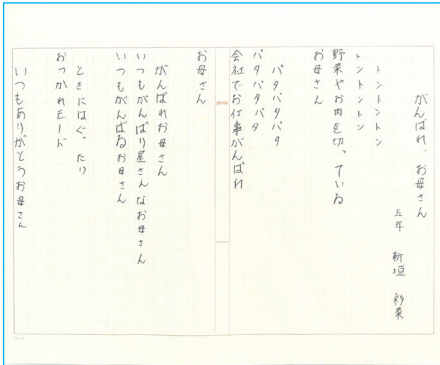 がんばれ、お母さん
五年 新垣 紗菜
トントントン
トントントン
野菜やお肉を切っている
お母さん
パタパタパタ
パタパタパタ
会社でお仕事がんばれ
お母さん
がんばれお母さん
いつもがんばり屋さんなお母さん
いつもがんばるお母さん
ときにはぐったり
おつかれモード
いつもありがとうお母さん